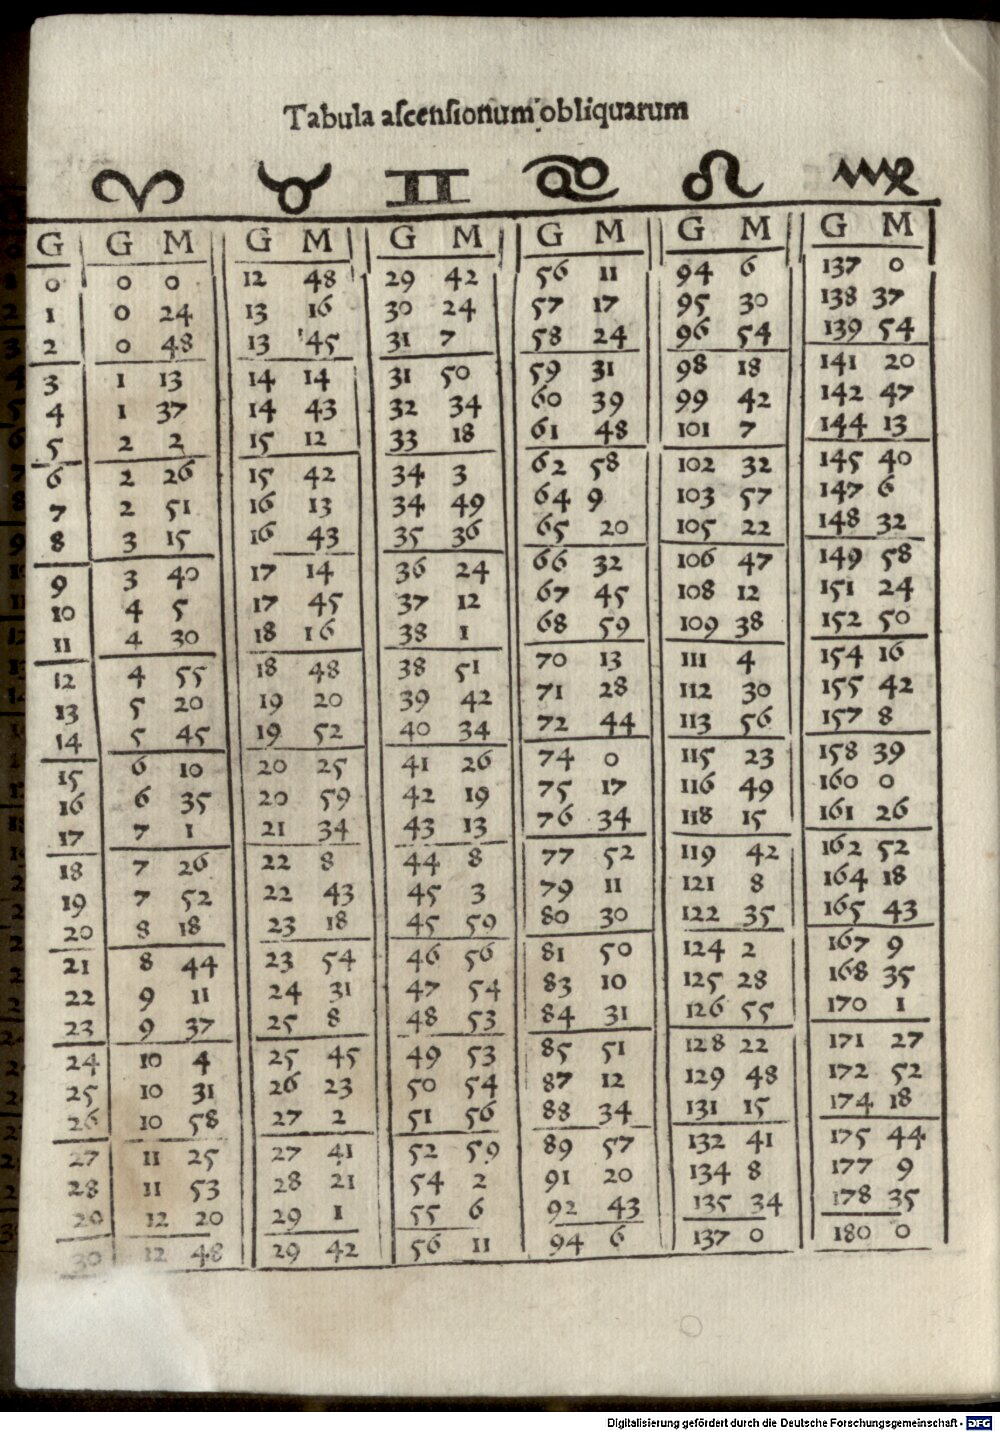 Tabula ascensionum obliquarum
♈ ♉ ♊ ♋ ♌ ♍
G G M G M G M G M G M G M
0 0 0 12 48 29 42 56 11 94 6 137 0
1 0 24 13 16 30 24 57 17 95 30 138 37
2 0 48 13 45 31 7 58 24 96 54 139 54
3 1 13 14 14 31 50 59 31 98 18 141 20
4 1 37 14 43 32 34 60 39 99 42 142 47
5 2 2 15 12 33 18 61 48 101 7 144 13
6 2 26 15 42 34 3 62 58 102 32 145 40
7 2 51 16 13 34 49 64 9 103 57 147 6
8 3 15 16 43 35 36 65 20 105 22 148 32
9 3 40 17 14 36 24 66 32 106 47 149 58
10 4 5 17 45 37 12 67 45 108 12 151 24
11 4 30 18 16 38 1 68 59 109 38 152 50
12 4 55 18 48 38 51 70 13 111 4 154 16
13 5 20 19 20 39 42 71 28 112 30 155 42
14 5 45 19 52 40 34 72 44 113 56 157 8
15 6 10 20 25 41 26 74 0 115 23 158 39
16 6 35 20 59 42 19 75 17 116 49 160 0
17 7 1 21 34 43 13 76 34 118 15 161 26
18 7 26 22 8 44 8 77 52 119 42 162 52
19 7 52 22 43 45 3 79 11 121 8 164 18
20 8 18 23 18 45 59 80 30 122 35 165 43
21 8 44 23 54 46 56 81 50 124 2 167 9
22 9 11 24 31 47 54 83 10 125 28 168 35
23 9 37 25 8 48 53 84 31 126 55 170 1
24 10 4 25 45 49 53 85 51 128 22 171 27
25 10 31 26 23 50 54 87 12 129 48 172 52
26 10 58 27 2 51 56 88 34 131 15 174 18
27 11 25 27 41 52 59 89 57 132 41 175 44
28 11 53 28 21 54 2 91 20 134 8 177 9
29 12 20 29 1 55 6 92 43 135 34 178 35
30 12 48 29 42 56 11 94 6 137 0 180 0
Digitalisierung gefördert durch die Deutsche Forschungsgemeinschaft - DFG